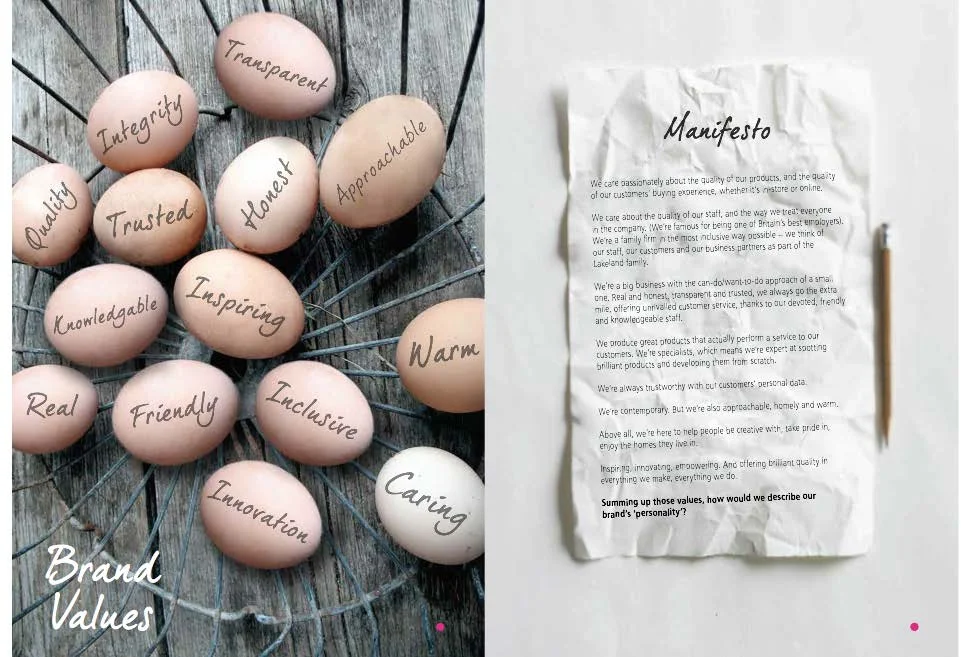 Transparent
Integrity
Approachable
Honest
Quality
Trusted
Inspiring
Knowledgable
Warm
Real
Friendly
Inclusive
Caring
Innovation
Brand
Values
Manifesto
We care passionately about the quality of our products, and the quality
of our customers' buying experience, whether it's in-store or online.
We care about the quality of our staff, and the way we treat everyone
in the company. (We're famous for being one of Britain's best employers).
We're a family firm in the most inclusive way possible – we think of
our staff, our customers and our business partners as part of the
Lakeland family.
We're a big business with the can-do/want-to-do approach of a small
one. Real and honest, transparent and trusted, we always go the extra
mile, offering unrivalled customer service, thanks to our devoted, friendly
and knowledgeable staff.
We produce great products that actually perform a service to our
customers. We're specialists, which means we're expert at spotting
brilliant products and developing them from scratch.
We're always trustworthy with our customers' personal data.
We're contemporary. But we're also approachable, homely and warm.
Above all, we're here to help people be creative with, take pride in,
enjoy the homes they live in.
Inspiring, innovating, empowering. And offering brilliant quality in
everything we make, everything we do.
Summing up those values, how would we describe our
brand's 'personality'?